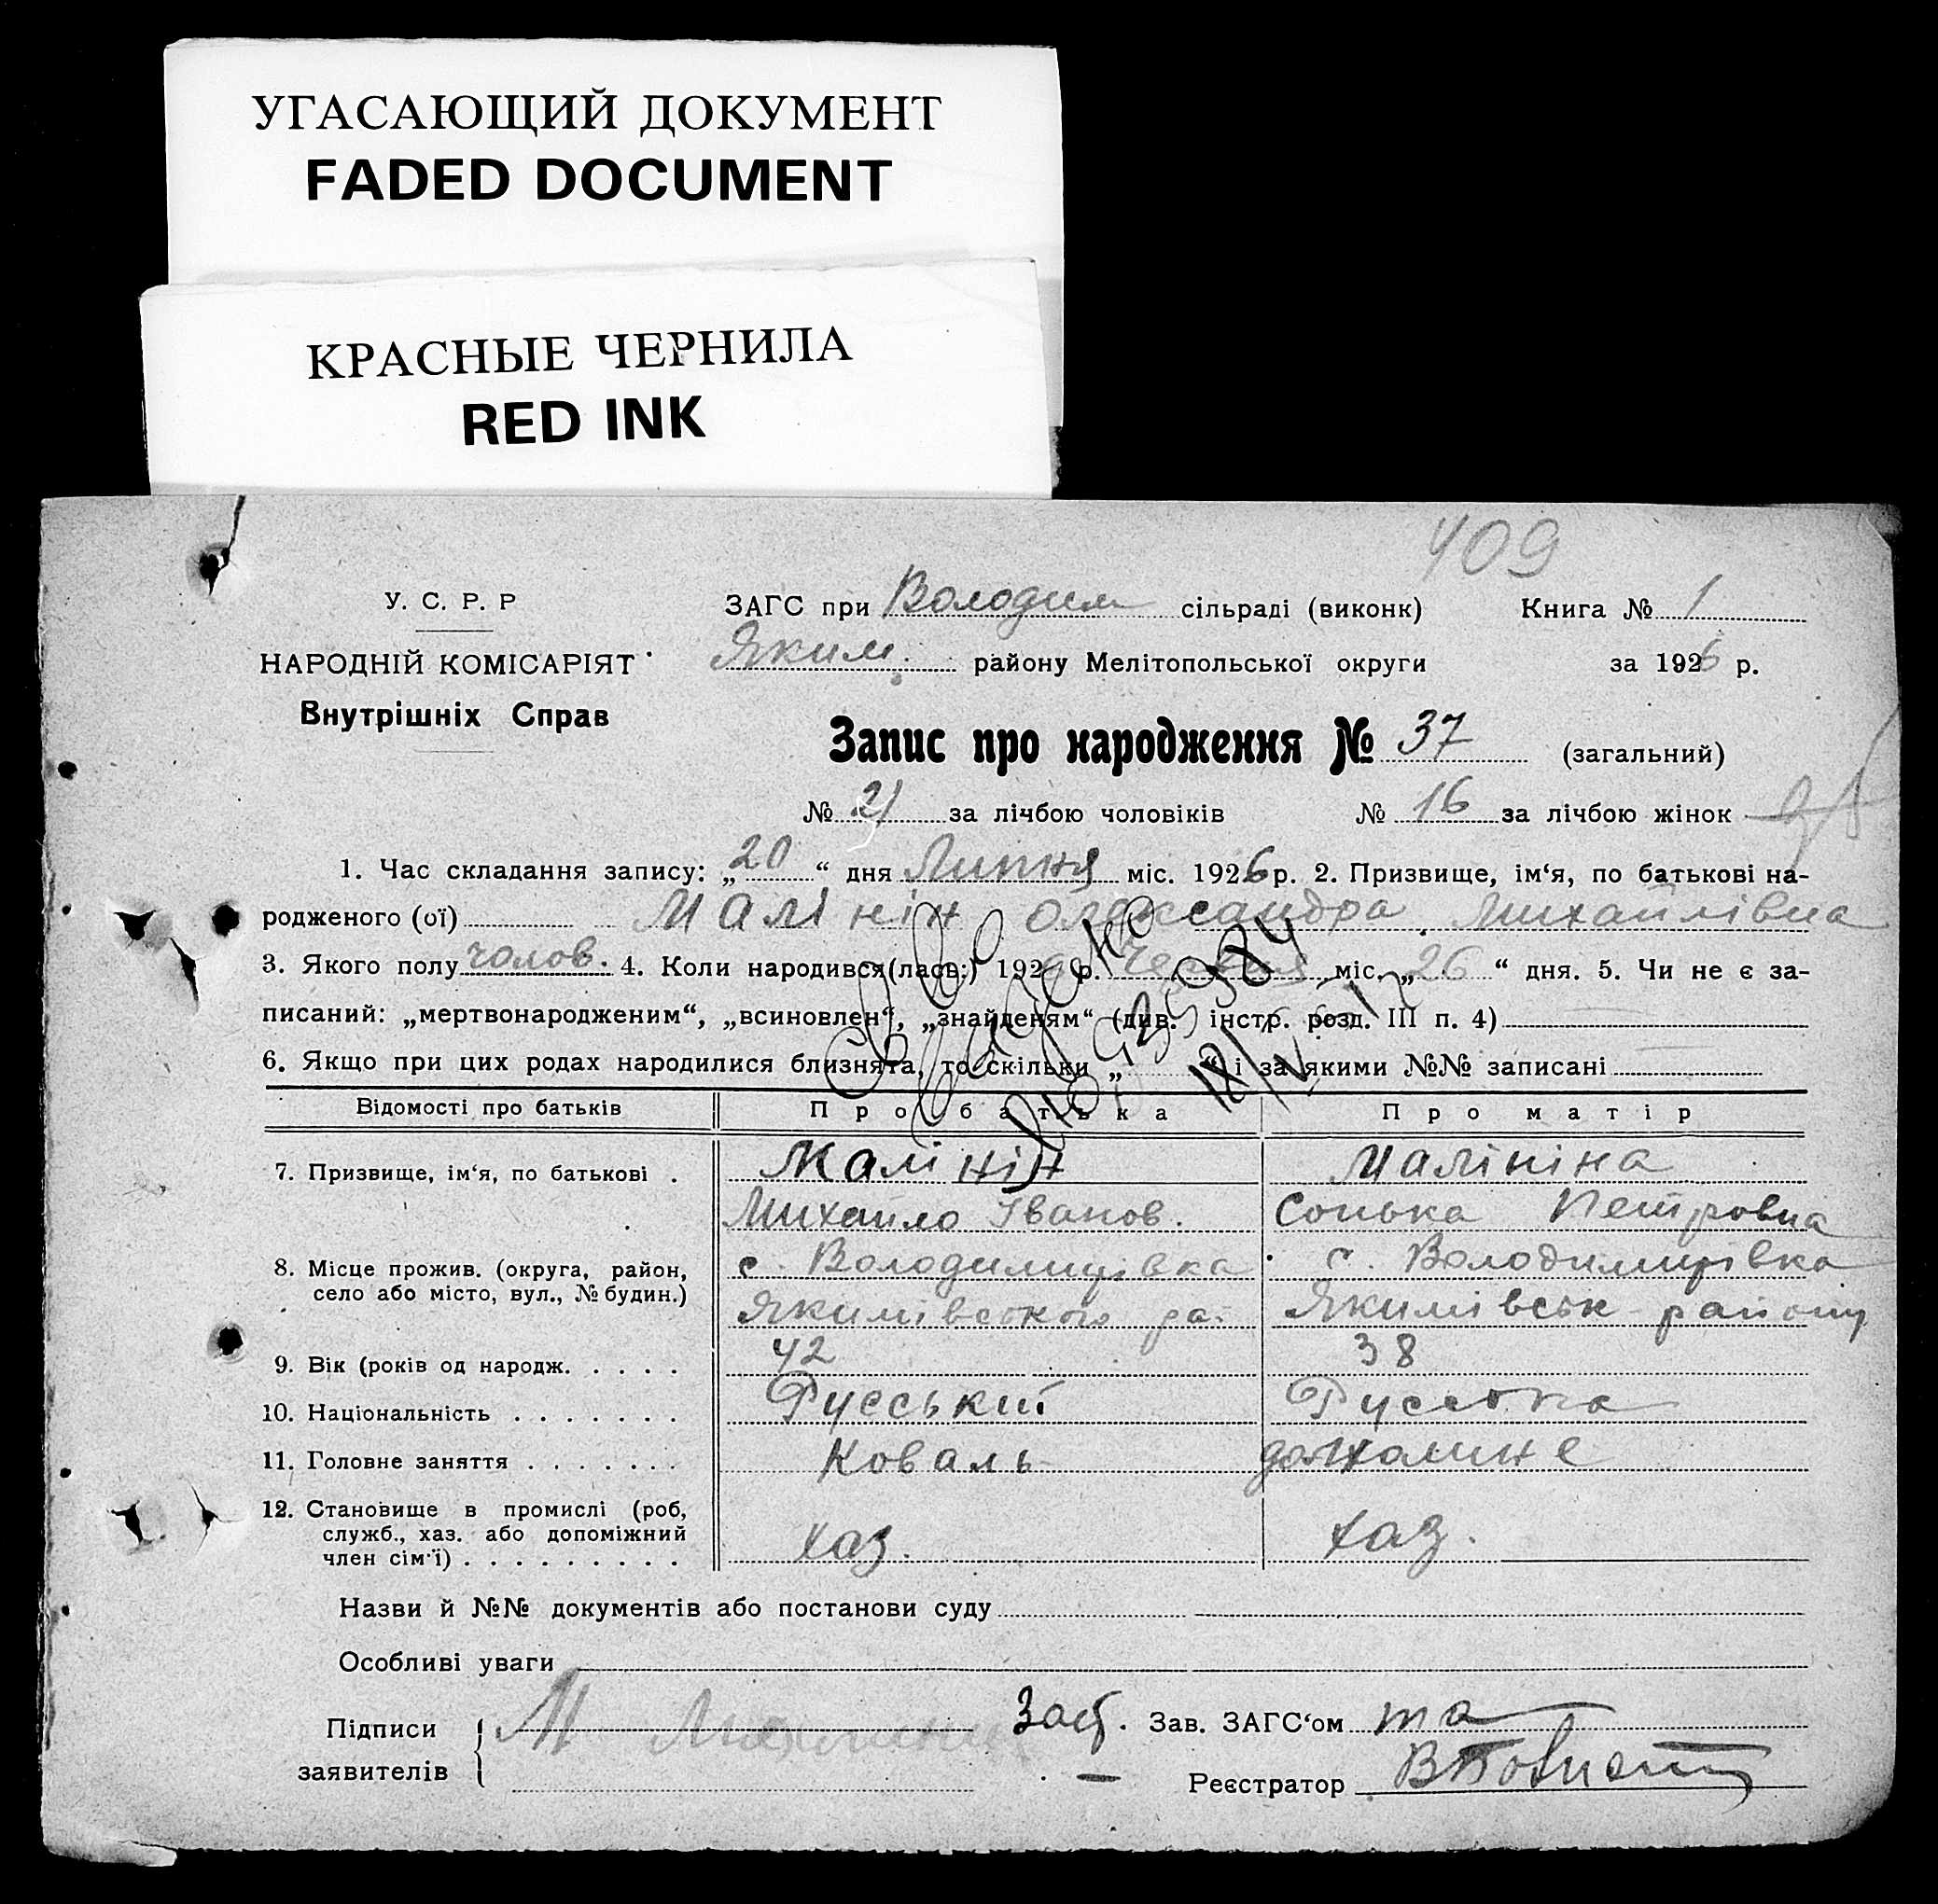 УГАСАЮЩИЙ ДОКУМЕНТ
FADED DOCUMENT
КРАСНЫЕ ЧЕРНИЛА
RED INK
409
У. С. Р. Р
НАРОДНІЙ КОМІСАРІЯТ
Внутрішніх Справ
ЗАГС при Володим сільраді (виконк) Книга № 1
Яким. району Мелітопольської округи за 1926 р.
Запис про народження № 37 (загальний)
№ 21 за лічбою чоловіків № 16 за лічбою жінок
1. Час складання запису: „20“ дня Липня міс. 1926 р. 2. Призвище, ім‘я, по батькові на-
родженого (ої) Малінін Олександра Михайлівна
3. Якого полу чолов. 4. Коли народився(лась:) 192 р. Червня міс. „26“ дня. 5. Чи не є за-
писаний: „мертвонародженим“, „всиновлен“, „знайденям“ (див. інстр. розд. III п. 4)
6. Якщо при цих родах народилися близнята, то скільки „ “ і за якими №№ записані
Відомості про батьків Про батька Про матір
7. Призвище, ім‘я, по батькові . Малінін Малініна
Михайло Іванов. Сонька Петровна
8. Місце прожив. (округа, район, с. Володимирівка с. Володимирівка
село або місто, вул., № будин.) Якимівського ра- Якимівськ району
9. Вік (років од народж. . . . . 42 38
10. Національність . . . . . . . Русський Русська
11. Головне заняття . . . . . . . Коваль
12. Становище в промислі (роб,
служб., хаз. або допоміжний хаз. хаз.
член сім‘ї) . . . . . . . . .
Назви й №№ документів або постанови суду
Особливі уваги
Підписи М Малинин Зав. ЗАГС‘ом
заявителів Реєстратор